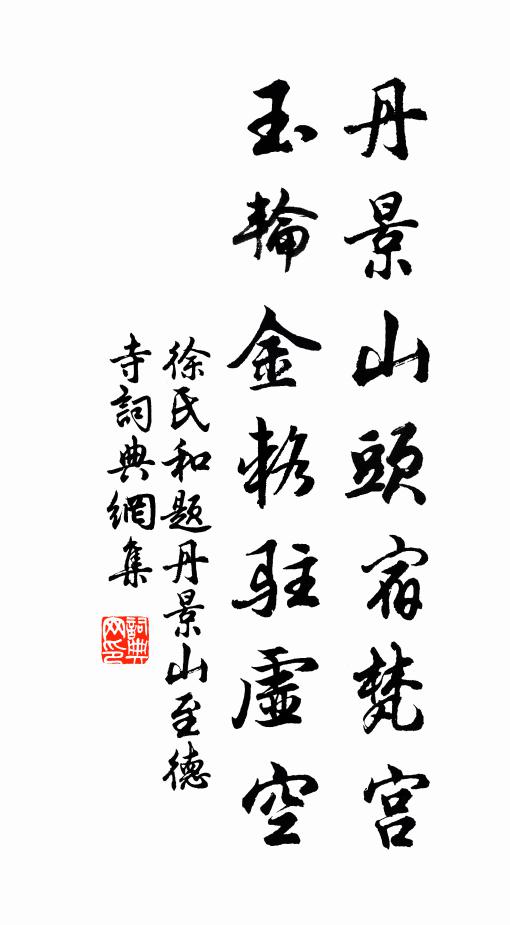 丹景山頭宿梵宮
玉輪金輅駐虛空
徐氏和題丹景山至德
寺詞典網集
詞典
網印